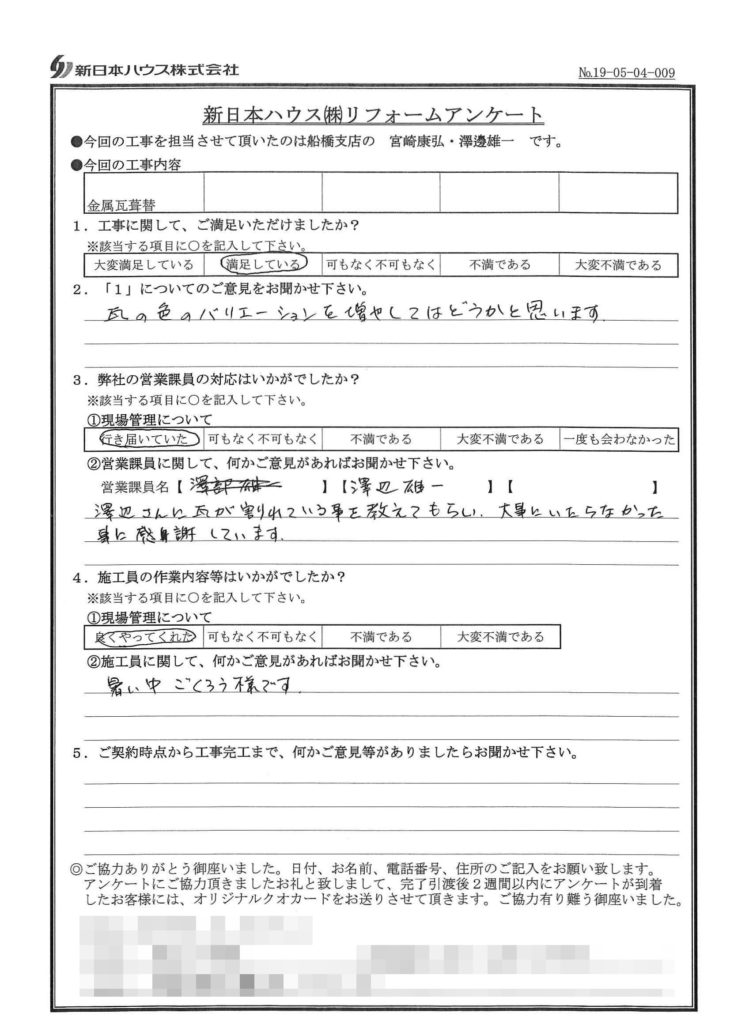 新日本ハウス株式会社
№19-05-04-009
新日本ハウス㈱リフォームアンケート
●今回の工事を担当させて頂いたのは船橋支店の 宮崎康弘・澤邊雄一 です。
●今回の工事内容
金属瓦葺替
1．工事に関して、ご満足いただけましたか？
※該当する項目に○を記入して下さい。
大変満足している 満足している 可もなく不可もなく 不満である 大変不満である
2．「1」についてのご意見をお聞かせ下さい。
瓦の色のバリエーションを増やしてはどうかと思います.
3．弊社の営業課員の対応はいかがでしたか？
※該当する項目に○を記入して下さい。
①現場管理について
行き届いていた 可もなく不可もなく 不満である 大変不満である 一度も会わなかった
②営業課員に関して、何かご意見があればお聞かせ下さい。
営業課員名【 】【澤辺 雄一 】【 】
澤辺さんに瓦が割れている事を教えてもらい. 大事にいたらなかった
事に感謝しています.
4．施工員の作業内容等はいかがでしたか？
※該当する項目に○を記入して下さい。
①現場管理について
良くやってくれた 可もなく不可もなく 不満である 大変不満である
②施工員に関して、何かご意見があればお聞かせ下さい。
暑い中 ごくろう様です.
5．ご契約時点から工事完工まで、何かご意見等がありましたらお聞かせ下さい。
◎ご協力ありがとう御座いました。日付、お名前、電話番号、住所のご記入をお願い致します。
アンケートにご協力頂きましたお礼と致しまして、完了引渡後2週間以内にアンケートが到着
したお客様には、オリジナルクオカードをお送りさせて頂きます。ご協力有り難う御座いました。